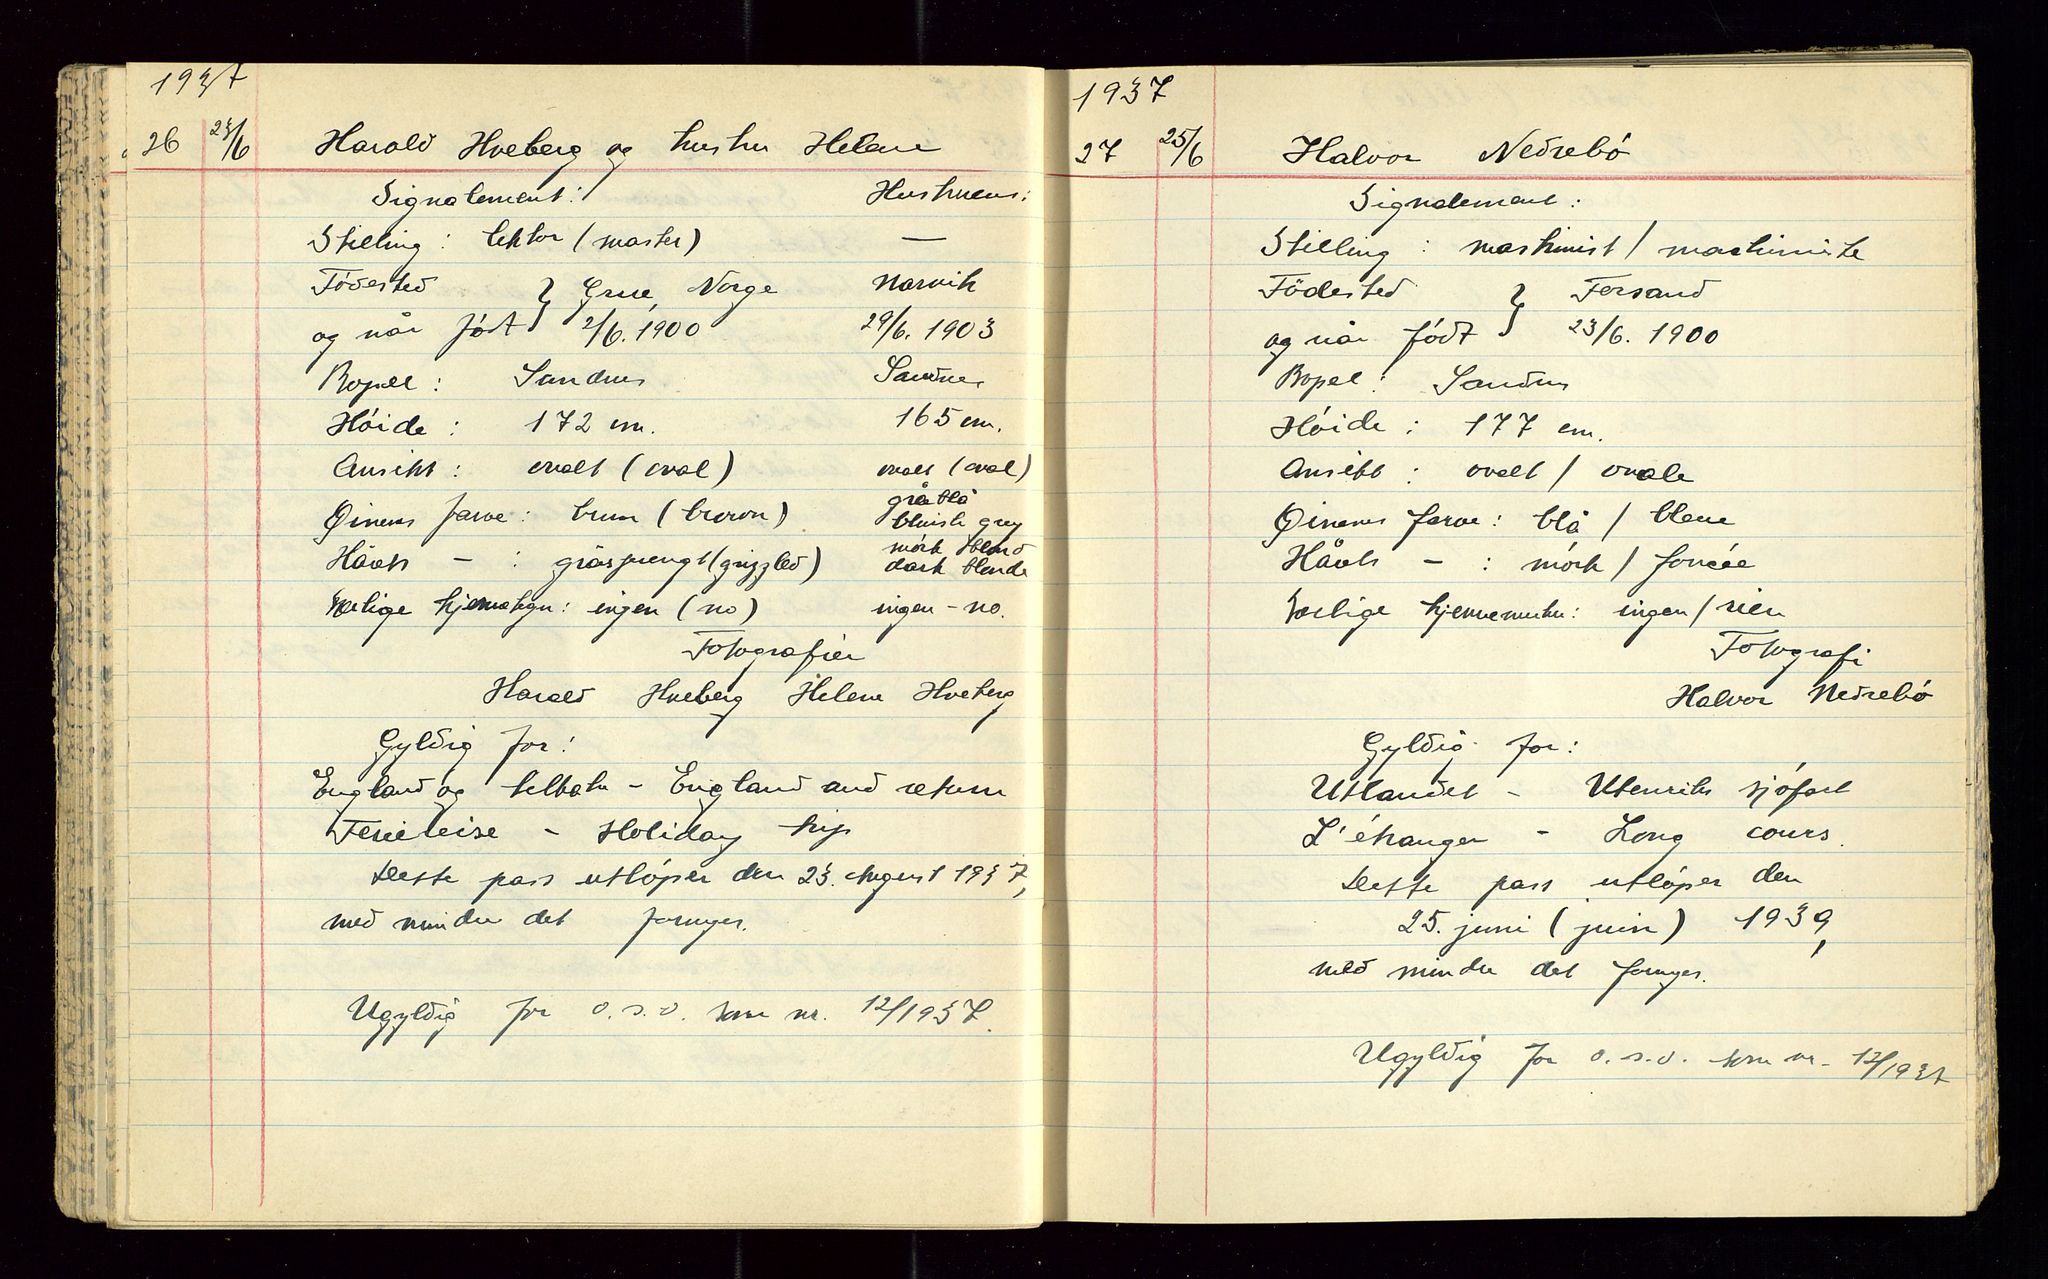 1937
26 23/6 Harald Hveberg og hustru Helene
Signalement: Hustruens:
Stilling: lektor (master) —
Fødested } Grue, Norge Narvik
og når født } 2/6. 1900 29/6. 1903
Bopel: Sandnes Sandnes
Høide: 172 cm. 165 cm.
Ansikt: ovalt (oval) ovalt (oval)
gråblå
Øinens farve: brun (brown) bluish grey
mørk blond
Hårets — : gråsprengt (grizzled) dark blonde
Særlige kjennetegn: ingen (no) ingen - no.
Fotografier
Harald Hveberg Helene Hveberg
Gyldig for:
England og tilbake - England and return
Feriereise - Holiday trip
Dette pass utløper den 23. August 1937,
med mindre det fornyes.
Ugyldig for o.s.v. som nr. 12/1937.
1937
27 25/6 Halvor Nedrebø
Signalement:
Stilling: maskinist / machiniste
Fødested } Forsand
og når født } 23/6. 1900
Bopel: Sandnes
Høide: 177 cm.
Ansikt: ovalt / ovale
Øinenes farve: blå / bleue
Hårets — : mørk / foncée
Særlige kjennemerker: ingen / rien
Fotografi
Halvor Nedrebø
Gyldig for:
Utlandet - Utenriks sjøfart
L'étranger - Long cours.
Dette pass utløper den
25. juni (juin) 1939,
med mindre det fornyes.
Ugyldig for o.s.v. som nr. 12/1937